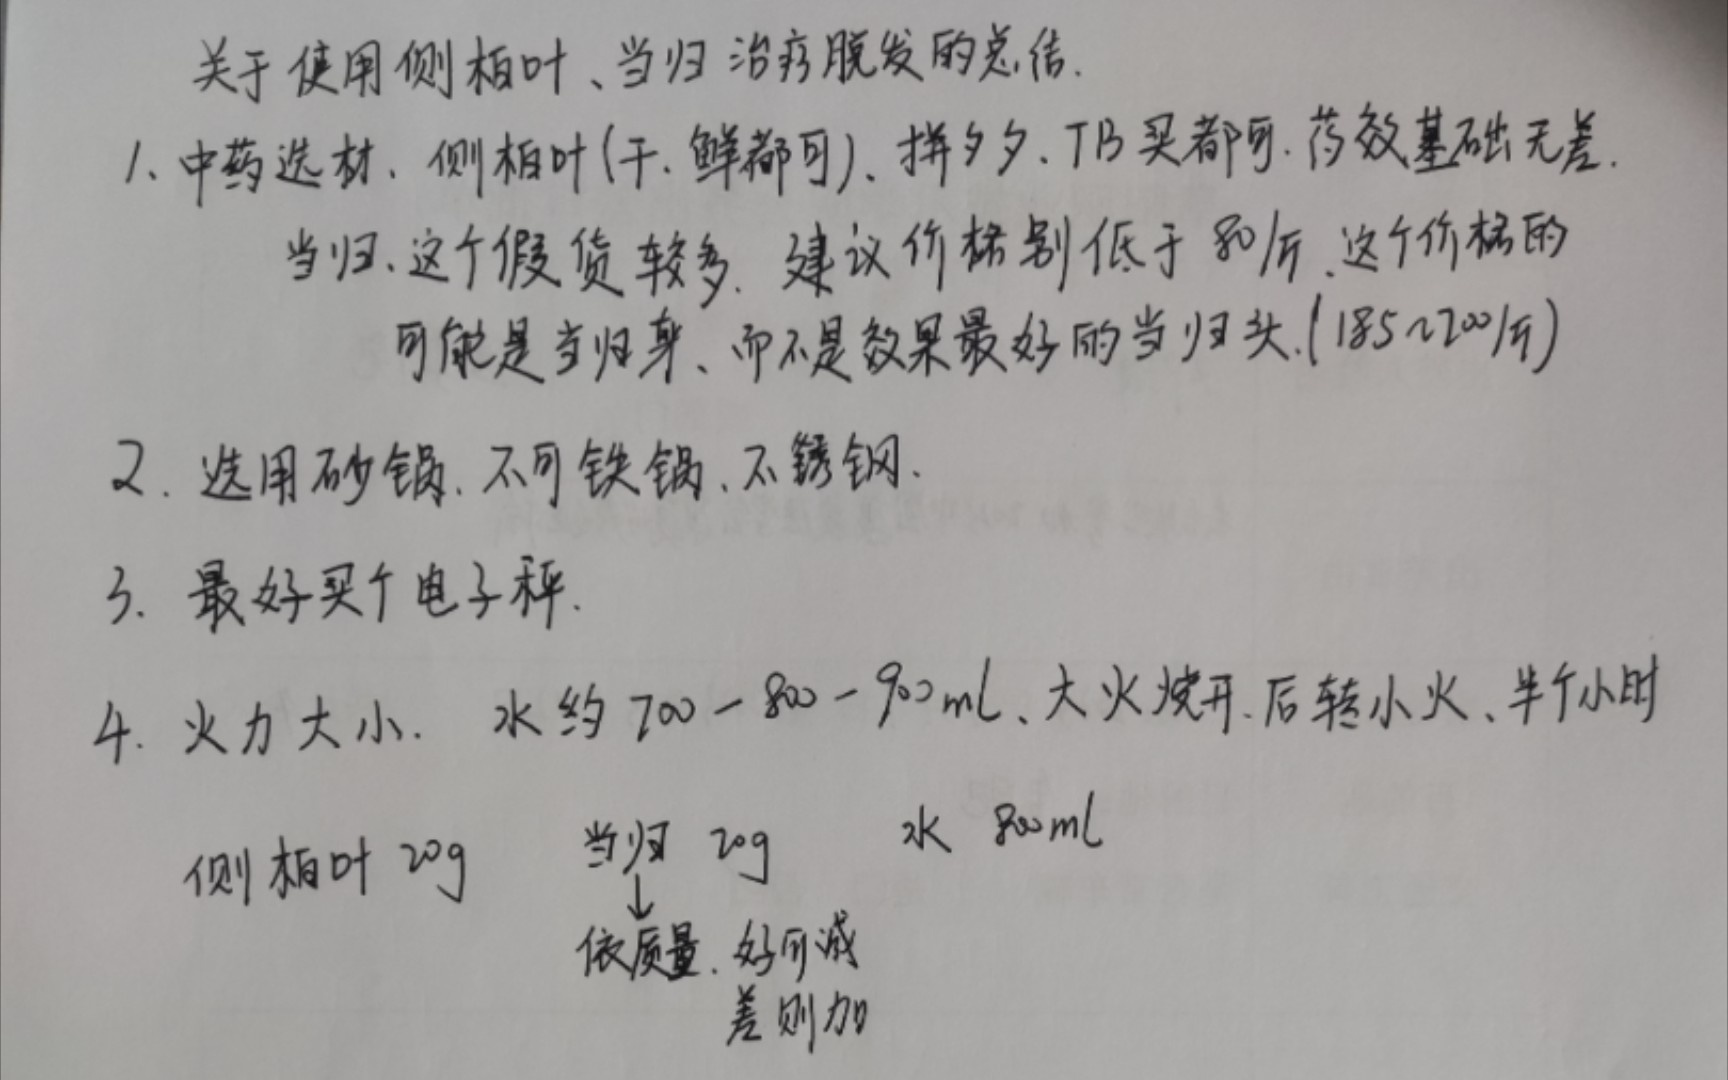 关于使用侧柏叶、当归治疗脱发的总结.
1、中药选材、侧柏叶(干、鲜都可)、拼夕夕、TB买都可.药效基础无差.
当归、这个假货较多、建议价格别低于80/斤、这个价格的
可能是当归身、而不是效果最好的当归头.(185~200/斤)
2. 选用砂锅、不可铁锅、不锈钢.
3. 最好买个电子秤.
4. 火力大小. 水约700-800-900mL、大火烧开、后转小火、半个小时
侧柏叶20g 当归 20g 水 800mL
↓
依质量、好可减
差则加